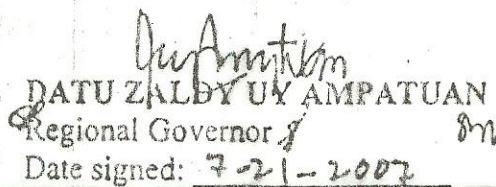 DATU ZALDY UY AMPATUAN
Regional Governor
Date signed: 7-21-2007